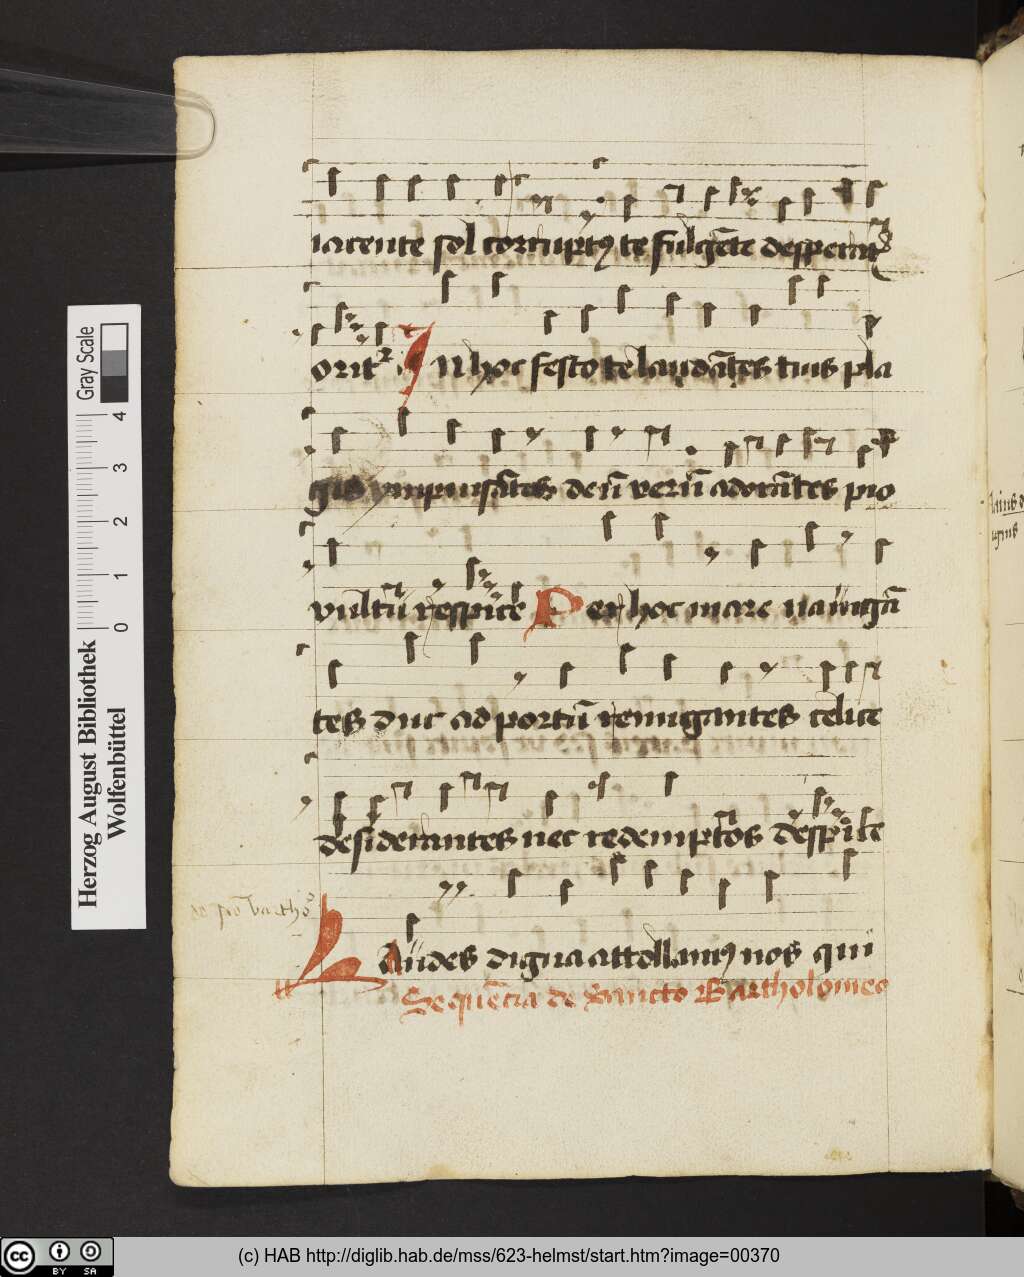 iacente sol corrūptꝰ te fulgēte desperat᷑
orit᷑ IN hoc festo te laudātes tuis pla
gis ympnisātes deū verū adorātes pio
vultū respice Per hoc mare nauigā
tes duc ad portū remigantes celice
desiderantes nec redemptos despice
do sco bartho
LAudes digna attollamꝰ nos qui
Sequēcia de Sancto Bartholomeo
Gray Scale
4
3
2
1
0
Herzog August Bibliothek
Wolfenbüttel
cc BY SA
(c) HAB http://diglib.hab.de/mss/623-helmst/start.htm?image=00370